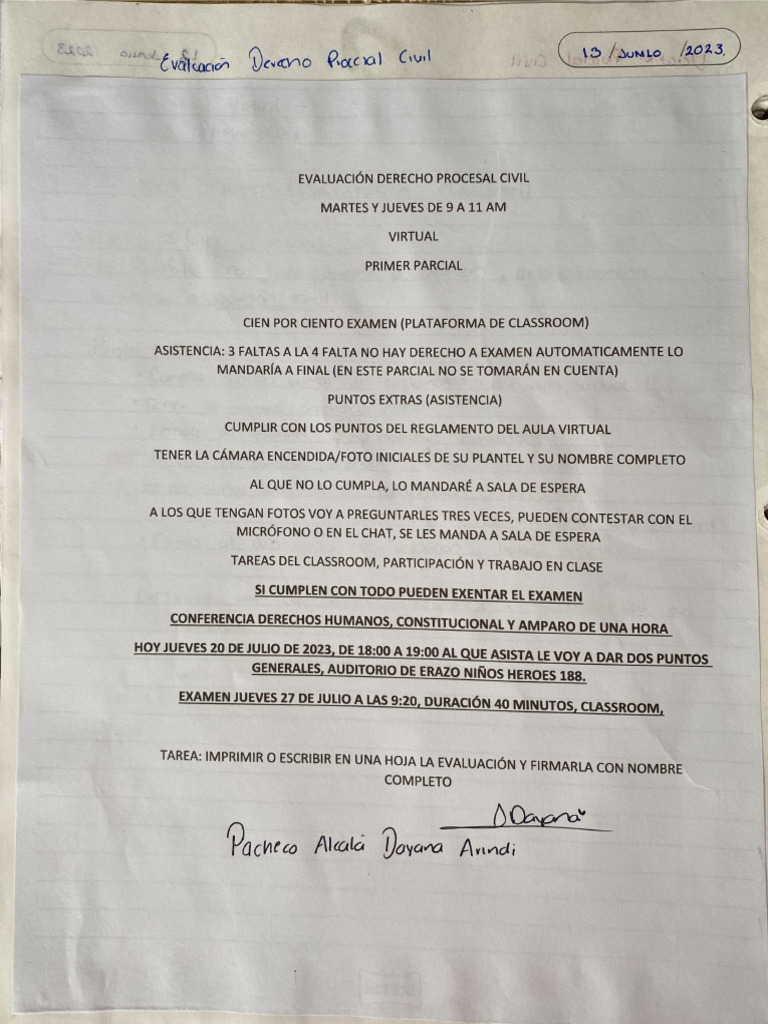 Evaluación Derecho Procesal Civil
13 / JUNIO / 2023.
EVALUACIÓN DERECHO PROCESAL CIVIL
MARTES Y JUEVES DE 9 A 11 AM
VIRTUAL
PRIMER PARCIAL
CIEN POR CIENTO EXAMEN (PLATAFORMA DE CLASSROOM)
ASISTENCIA: 3 FALTAS A LA 4 FALTA NO HAY DERECHO A EXAMEN AUTOMATICAMENTE LO
MANDARÍA A FINAL (EN ESTE PARCIAL NO SE TOMARÁN EN CUENTA)
PUNTOS EXTRAS (ASISTENCIA)
CUMPLIR CON LOS PUNTOS DEL REGLAMENTO DEL AULA VIRTUAL
TENER LA CÁMARA ENCENDIDA/FOTO INICIALES DE SU PLANTEL Y SU NOMBRE COMPLETO
AL QUE NO LO CUMPLA, LO MANDARÉ A SALA DE ESPERA
A LOS QUE TENGAN FOTOS VOY A PREGUNTARLES TRES VECES, PUEDEN CONTESTAR CON EL
MICRÓFONO O EN EL CHAT, SE LES MANDA A SALA DE ESPERA
TAREAS DEL CLASSROOM, PARTICIPACIÓN Y TRABAJO EN CLASE
SI CUMPLEN CON TODO PUEDEN EXENTAR EL EXAMEN
CONFERENCIA DERECHOS HUMANOS, CONSTITUCIONAL Y AMPARO DE UNA HORA
HOY JUEVES 20 DE JULIO DE 2023, DE 18:00 A 19:00 AL QUE ASISTA LE VOY A DAR DOS PUNTOS
GENERALES, AUDITORIO DE ERAZO NIÑOS HEROES 188.
EXAMEN JUEVES 27 DE JULIO A LAS 9:20, DURACIÓN 40 MINUTOS, CLASSROOM,
TAREA: IMPRIMIR O ESCRIBIR EN UNA HOJA LA EVALUACIÓN Y FIRMARLA CON NOMBRE
COMPLETO
Dayana
Pacheco Alcalá Dayana Arindi